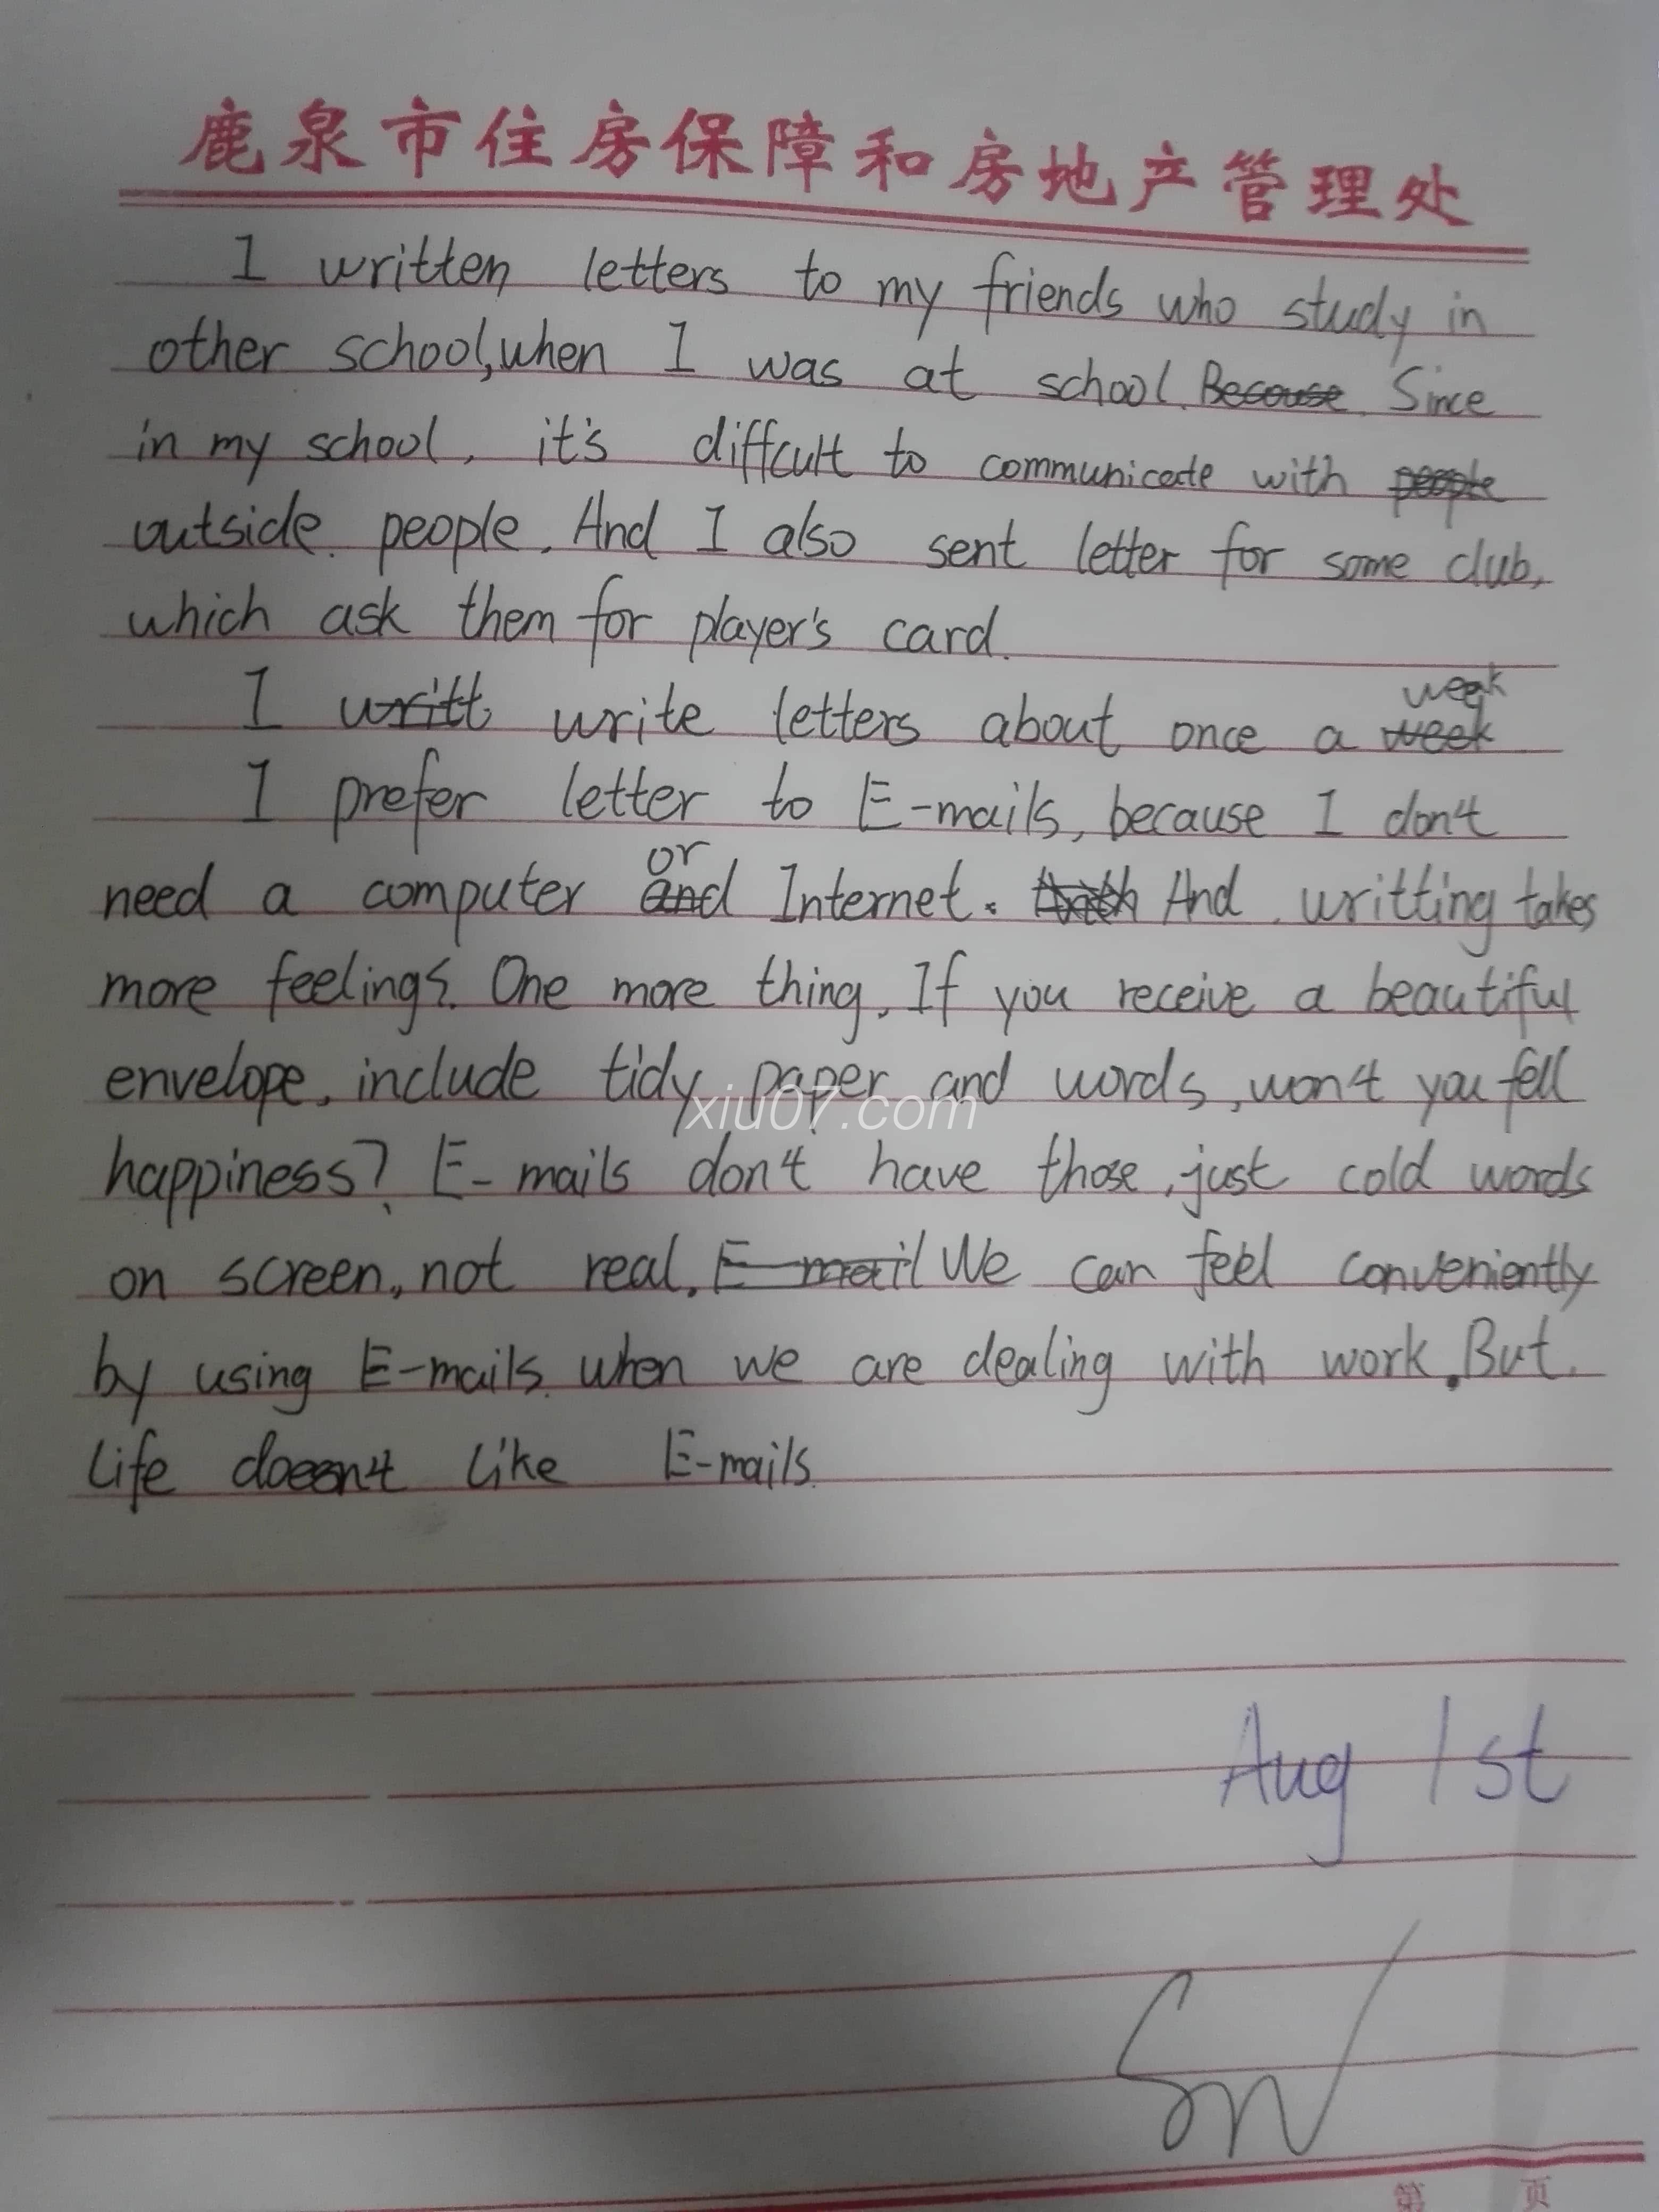 鹿泉市住房保障和房地产管理处
I written letters to my friends who study in
other school, when I was at school. Because. Since
in my school, it's diffcult to communicate with people
outside. people. And I also sent letter for some club,
which ask them for player's card.
I writt write letters about once a week week
I prefer letter to E-mails, because I don't
need a computer and or Internet. And. writting takes
more feelings. One more thing, If you receive a beautiful
envelope, include tidy paper and words, won't you fell
happiness? E-mails don't have those, just cold words
on screen, not real. E-mail We can feel conveniently
by using E-mails when we are dealing with work. But
life doesn't like E-mails.
xiu07.com
Aug 1st
第 页